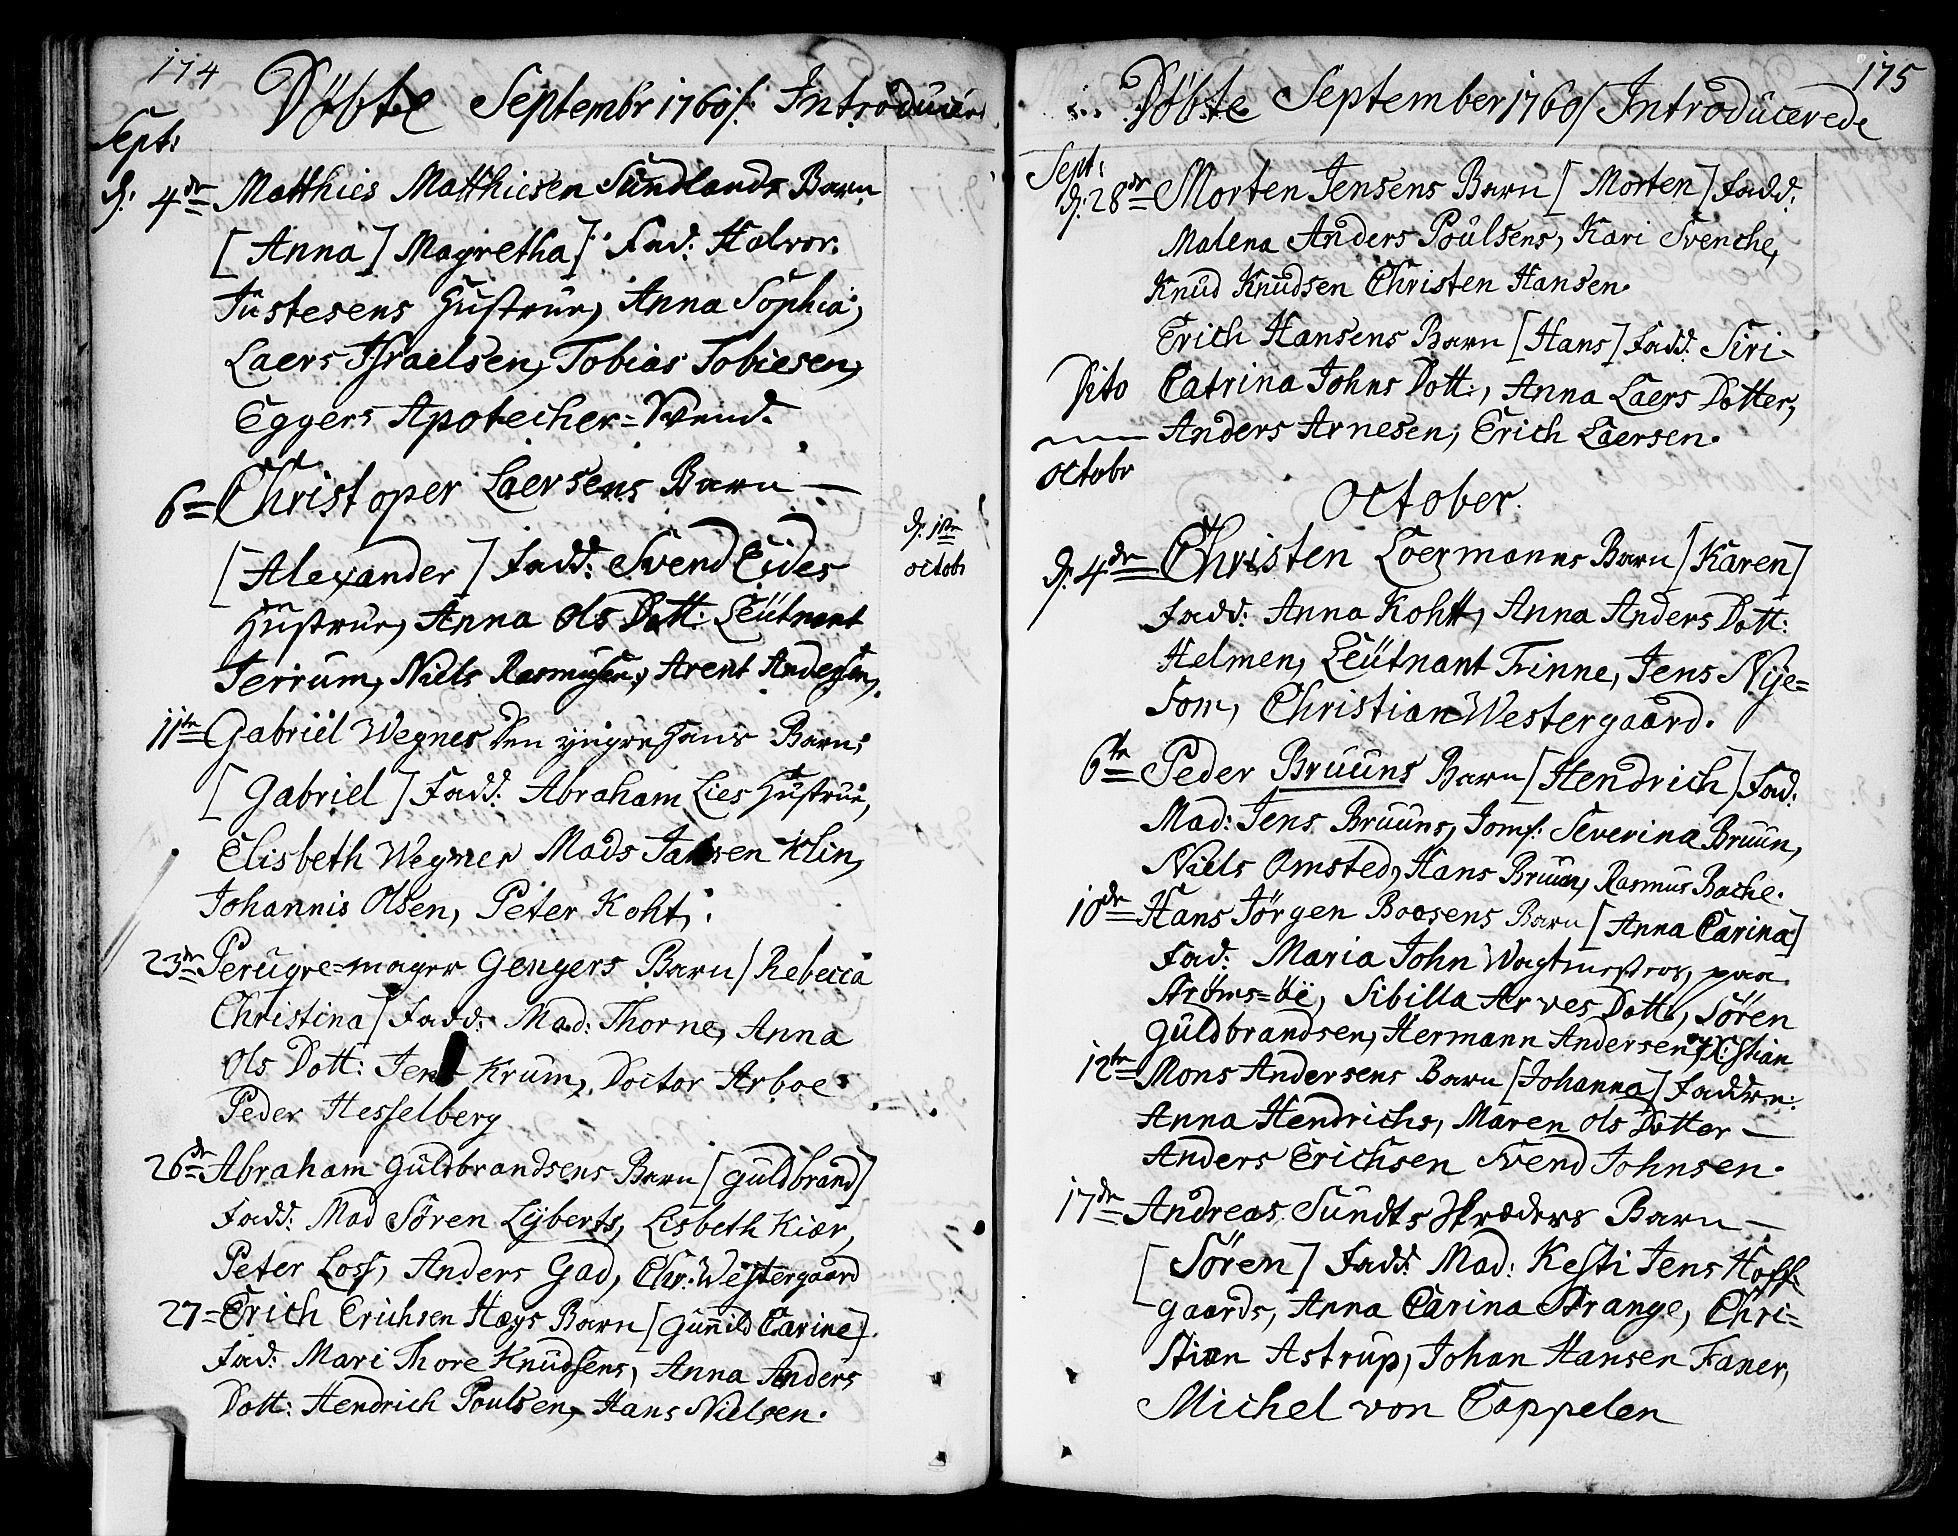 174
Döbte Septembr 1760/. Introducer
Sept:
d: 4de Matthies Matthiesen Sundlands Barn
[Anna] Magretha] Fad: Halvor
Justesens Hustrue, Anna Sophia,
Laers Israelsen, Tobias Tobiesen,
Eggers Apotecher=Svend.
6= Christoper Laersens Barn —
[Alexander] Fadd: Svend Eides
d: 1ste
octob:
Hustrue, Anna Ols Dott: Leütnant
Jerrum, Niels Rasmusen, Arent Andersen,
11te Gabriel Wegnes den yngre Hans Barn,
[Gabriel] Fadd: Abraham Lies Hustrue,
Elisbeth Wegner Mads Jansen Klin,
Johannis Olsen, Peter Koht,
23de Perugre=mager Gengers Barn [Rebecca
Christina] Fadd: Mad: Thorne, Anna
Ols Dott: Jens Krum, Doctor Arboe
Peder Hesselberg
26de Abraham Guldbrandsens Barn [Guldbrand]
Fadd: Mad Sören Lyberts, Lisbeth Kiær,
Peter Loss, Anders Gad, Chr: Westergaard
27= Erich Erichsen Høgs Barn [Gunnild Carine].
Fad: Mari Thore Knudsens, Anna Anders
Dott: Hendrich Poulsen, Hans Nielsen.
175
Döbte September 1760/ Introducerede
Sept:
d: 28de Morten Jensens Barn [Morten] Fadd:
Malena Anders Poülsens, Kari Svenche,
Knud Knudsen Christen Hansen.
Erich Hansens Barn [Hans] Fadd: Siri
Dito Catrina Johns Dott:, Anna Laers Dotter,
Anders Arnesen, Erich Laersen.
octobr
October.
d: 4de Christen Loermanns Barn [Karen]
Fadd: Anna Koht, Anna Anders Dott:
Helmen, Leütnant Trinne, Jens Nye=
som, Christian Westergaard.
6te Peder Bruuns Barn [Hendrich] Fad:
Mad: Jens Bruuns, Jomf: Severina Bruun,
Niels Omsted, Hans Bruun, Rasmus Bache.
10de Hans Jörgen Boosens Barn [Anna Carina]
Fad: Maria John Wagtmesters, paa
Ströms=öe, Sibilla Arves Dotter, Sören
Guldbrandsen, Hermann Andersen, og X:stian
12te Mons Andersens Barn [Johanna] Faddere:
Anna Hendrichs, Maren Ols Dotter —
Anders Erichsen Svend Johnsen.
17de Andreas Sundts Skræders Barn —
[Sören] Fadd: Mad: Kesti Jens Hoff=
gaards, Anna Carina Strange, Chri=
stian Astrup, Johan Hansen Faner,
Michel von Cappelen